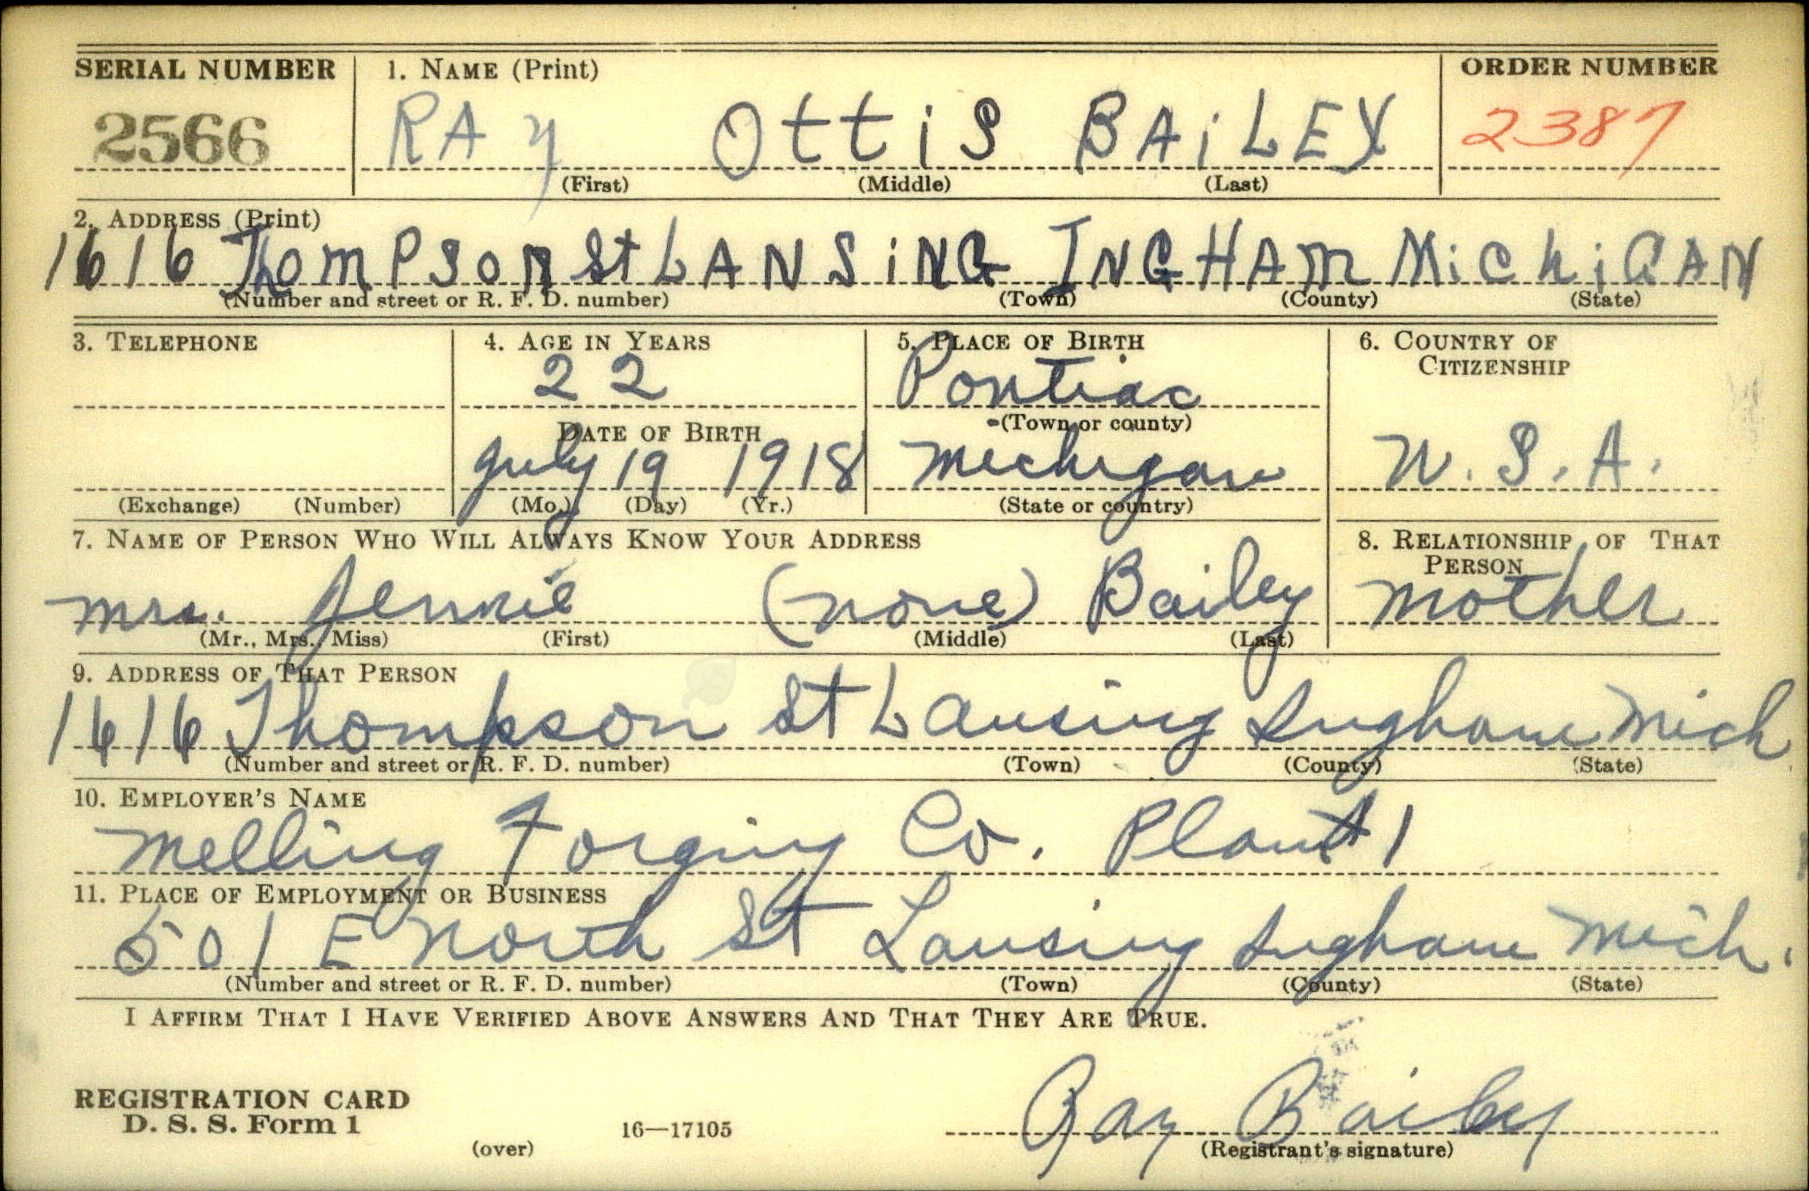 SERIAL NUMBER 1. NAME (Print) ORDER NUMBER
2566 RAy OttiS BAiLEY 2387
(First) (Middle) (Last)
2. ADDRESS (Print)
1616 ThomPSon St LANSiNG INGHAm MiChiGAN
(Number and street or R. F. D. number) (Town) (County) (State)
3. TELEPHONE 4. AGE IN YEARS 5. PLACE OF BIRTH 6. COUNTRY OF CITIZENSHIP
22 Pontiac
DATE OF BIRTH (Town or county)
July 19 1918 Michigan U. S. A.
(Exchange) (Number) (Mo.) (Day) (Yr.) (State or country)
7. NAME OF PERSON WHO WILL ALWAYS KNOW YOUR ADDRESS 8. RELATIONSHIP OF THAT PERSON
Mrs. Jennie (none) Bailey Mother
(Mr., Mrs., Miss) (First) (Middle) (Last)
9. ADDRESS OF THAT PERSON
1616 Thompson St Lansing Ingham Mich
(Number and street or R. F. D. number) (Town) (County) (State)
10. EMPLOYER'S NAME
Melling Forging Co. Plant 1
11. PLACE OF EMPLOYMENT OR BUSINESS
501 E North St Lansing Ingham Mich.
(Number and street or R. F. D. number) (Town) (County) (State)
I AFFIRM THAT I HAVE VERIFIED ABOVE ANSWERS AND THAT THEY ARE TRUE.
REGISTRATION CARD
D. S. S. Form 1 16—17105 Ray Bailey
(over) (Registrant's signature)